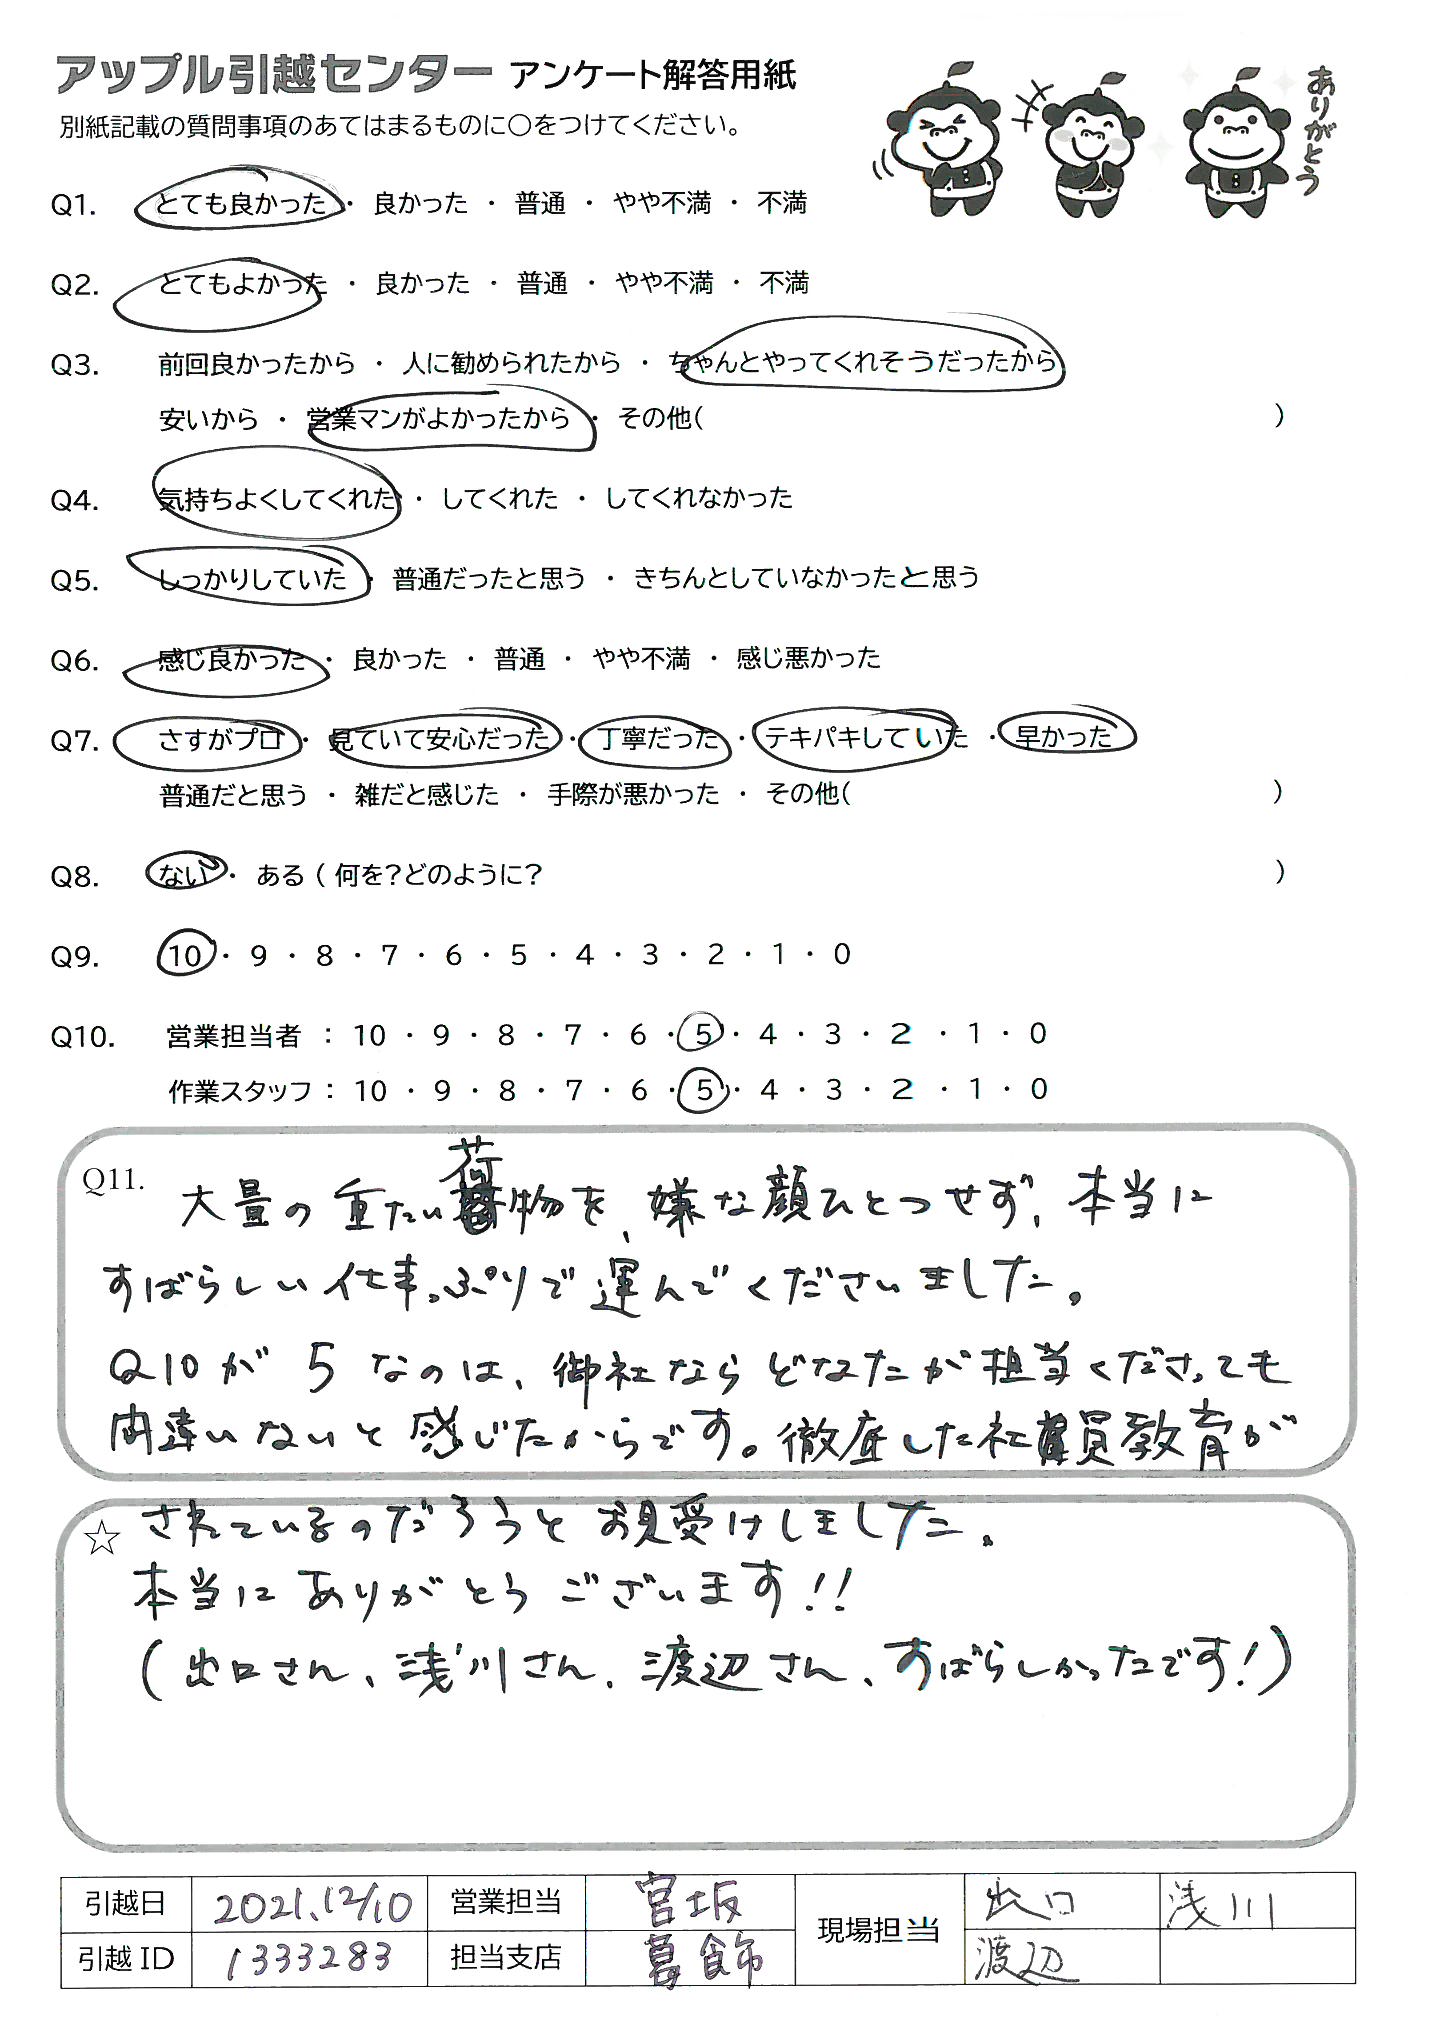 アップル引越センター アンケート解答用紙
別紙記載の質問事項のあてはまるものに○をつけてください。
ありがとう
Q1. とても良かった ・ 良かった ・ 普通 ・ やや不満 ・ 不満
Q2. とてもよかった ・ 良かった ・ 普通 ・ やや不満 ・ 不満
Q3. 前回良かったから ・ 人に勧められたから ・ ちゃんとやってくれそうだったから
安いから ・ 営業マンがよかったから ・ その他( )
Q4. 気持ちよくしてくれた ・ してくれた ・ してくれなかった
Q5. しっかりしていた ・ 普通だったと思う ・ きちんとしていなかったと思う
Q6. 感じ良かった ・ 良かった ・ 普通 ・ やや不満 ・ 感じ悪かった
Q7. さすがプロ ・ 見ていて安心だった ・ 丁寧だった ・ テキパキしていた ・ 早かった
普通だと思う ・ 雑だと感じた ・ 手際が悪かった ・ その他( )
Q8. ない ・ ある ( 何を?どのように? )
Q9. 10 ・ 9 ・ 8 ・ 7 ・ 6 ・ 5 ・ 4 ・ 3 ・ 2 ・ 1 ・ 0
Q10. 営業担当者 : 10 ・ 9 ・ 8 ・ 7 ・ 6 ・ 5 ・ 4 ・ 3 ・ 2 ・ 1 ・ 0
作業スタッフ : 10 ・ 9 ・ 8 ・ 7 ・ 6 ・ 5 ・ 4 ・ 3 ・ 2 ・ 1 ・ 0
Q11. 大量の重たい荷物を、嫌な顔ひとつせず、本当に
すばらしい仕事っぷりで運んでくださいました。
Q10が 5 なのは、御社ならどなたが担当くださっても
間違いないと感じたからです。徹底した社員教育が
☆ されているのだろうとお見受けしました。
本当にありがとうございます!!
(出口さん、浅川さん、渡辺さん、すばらしかったです!)
引越日 2021.12/10 営業担当 宮坂 現場担当 出口 浅川
引越ID 1333283 担当支店 葛飾 渡辺